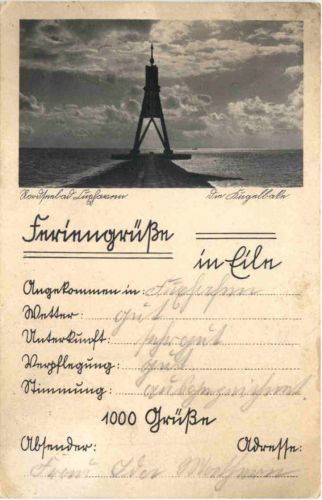 Nordseebad Cuxhaven Die Kugelbake
Feriengrüße
in Eile
Angekommen in: Cuxhaven
Wetter: gut
Unterkunft: sehr gut
Verpflegung: gut
Stimmung: ausgezeichnet
1000 Grüße
Absender: Adresse: